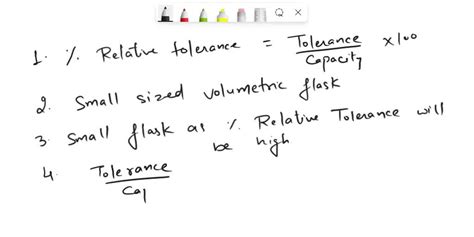 1. % Relative tolerance = Tolerance / Capacity × 100
2. Small sized volumetric flask
3. Small flask as % Relative Tolerance will
be high
4. Tolerance / Cap